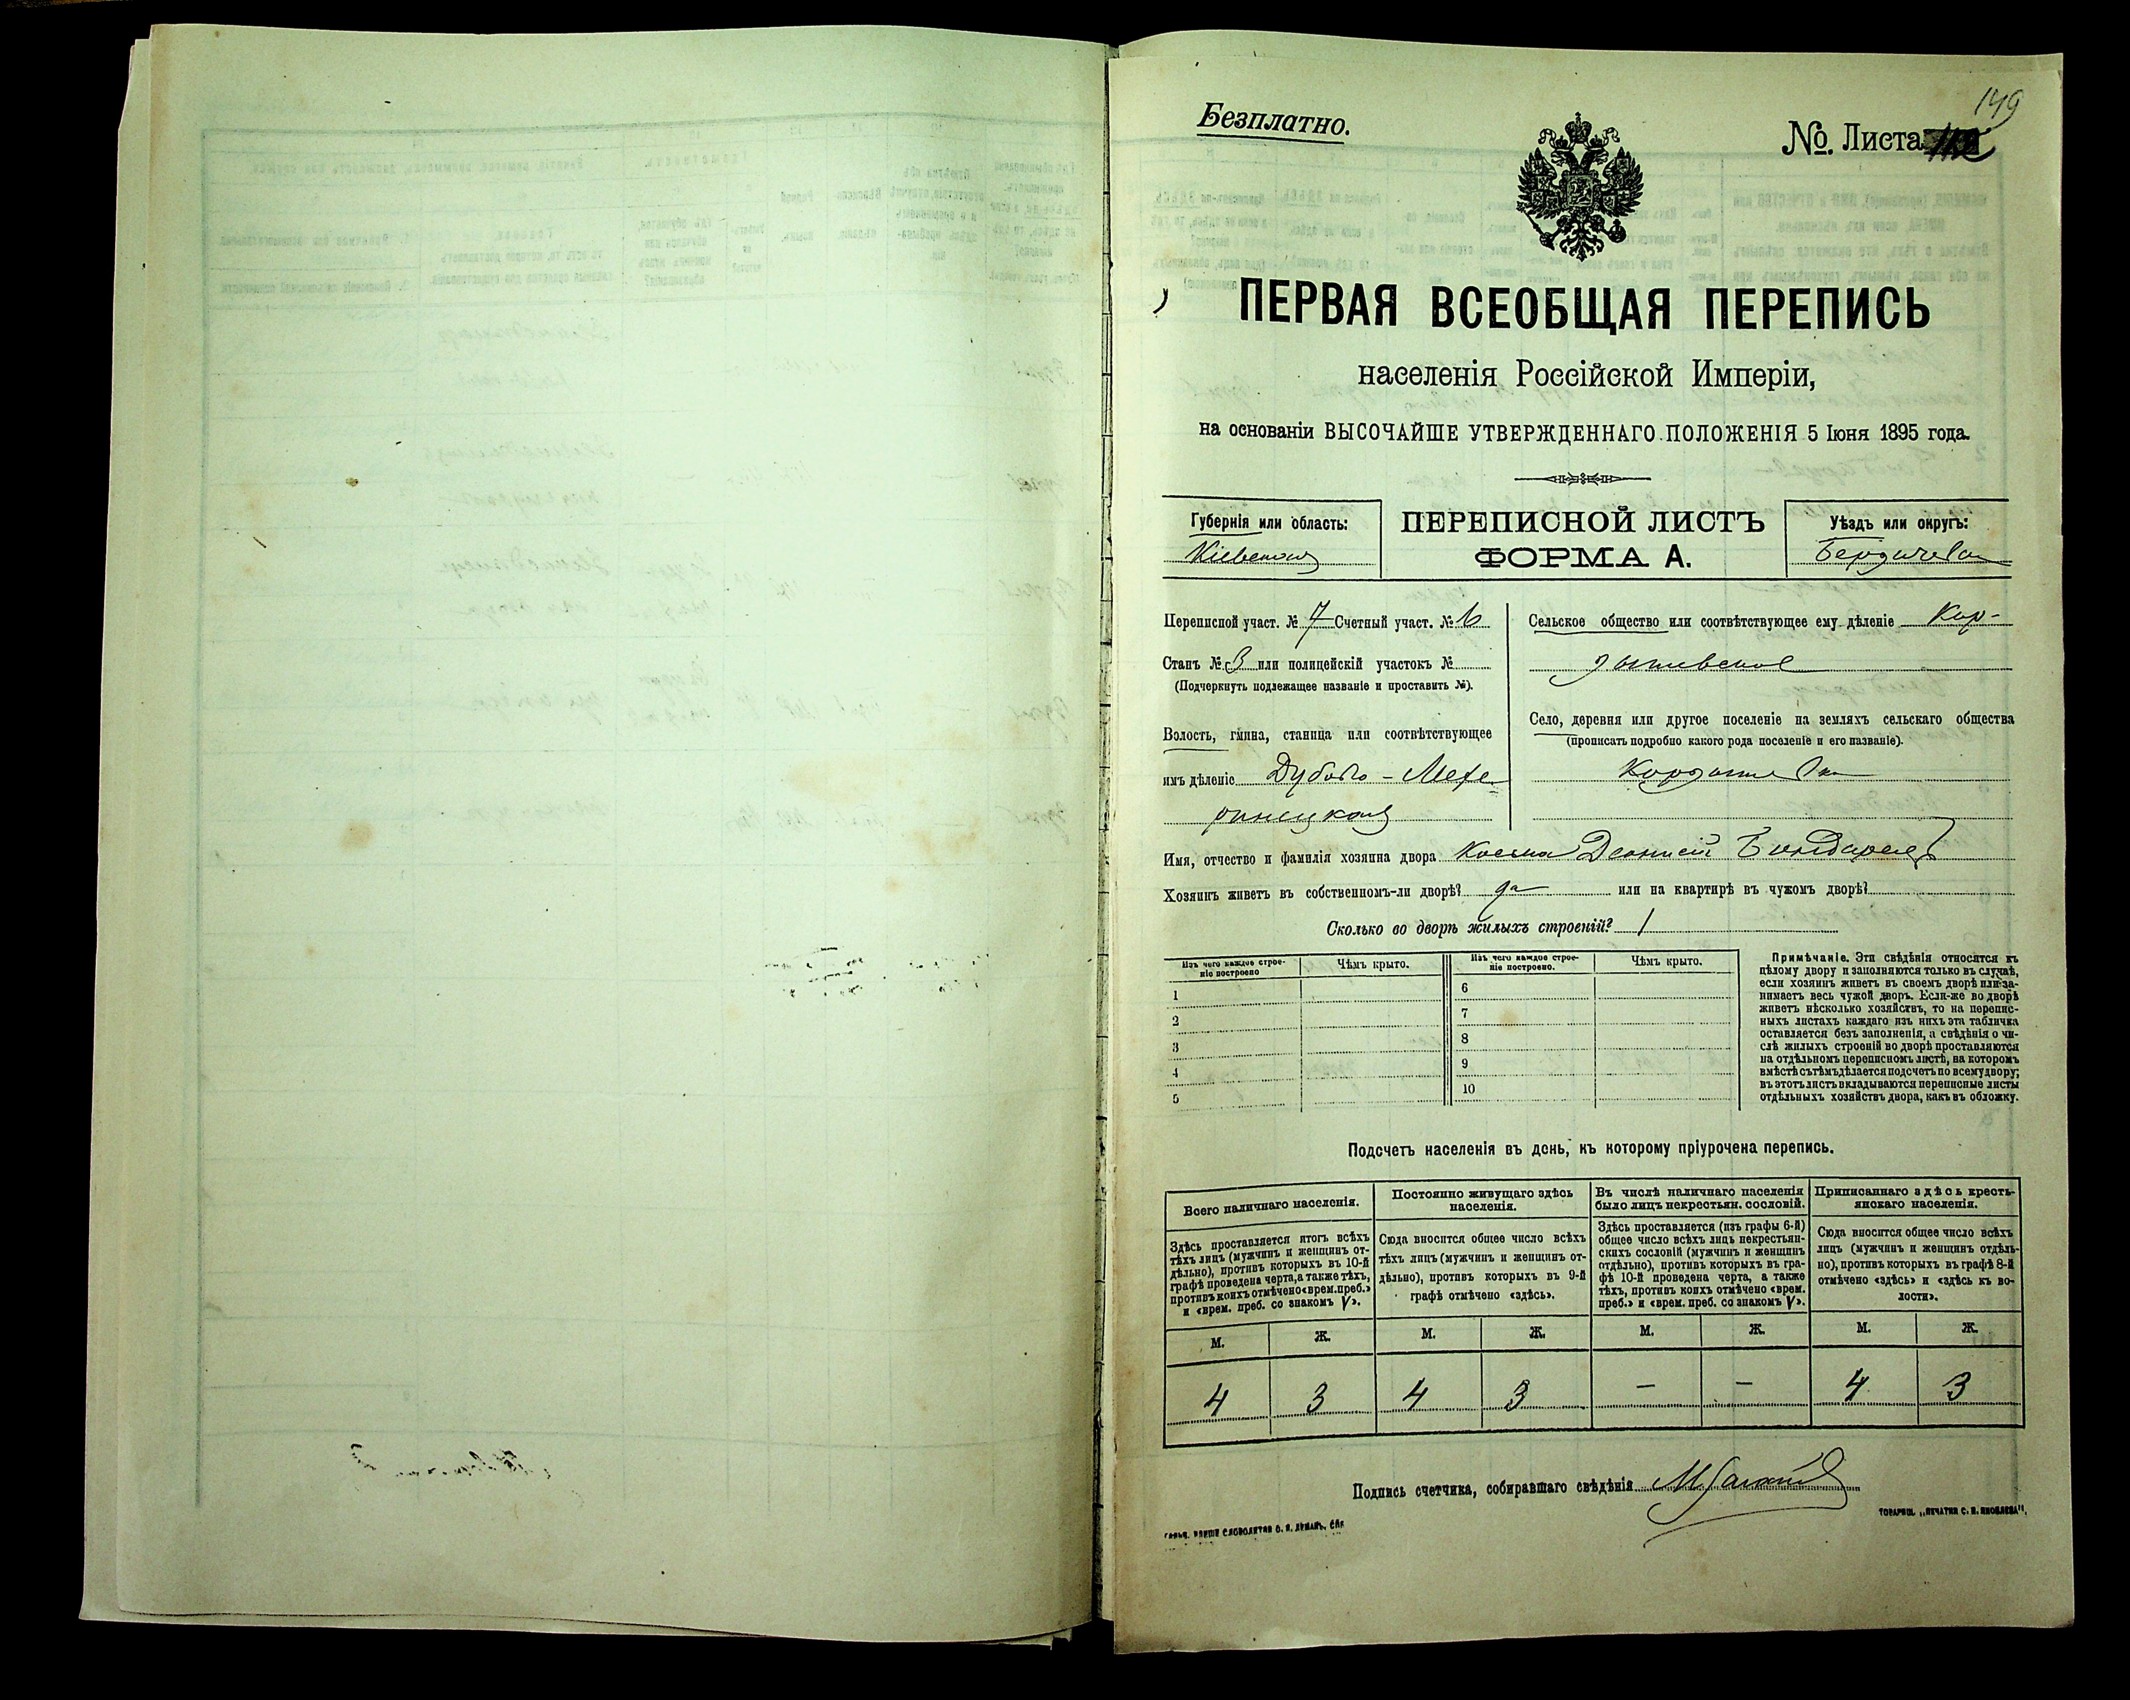 149
Безплатно.
№. Листа
ПЕРВАЯ ВСЕОБЩАЯ ПЕРЕПИСЬ
населенія Россійской Имперіи,
на основаніи ВЫСОЧАЙШЕ УТВЕРЖДЕННАГО ПОЛОЖЕНІЯ 5 Іюня 1895 года.
Губернія или область:
Кіевская
ПЕРЕПИСНОЙ ЛИСТЪ
ФОРМА А.
Уѣздъ или округъ:
Бердичевск
Переписной участ. № 7 Счетный участ. № 6
Станъ № 3 или полицейскій участокъ №
(Подчеркнуть подлежащее названіе и проставить №).
Волость, гмина, станица или соотвѣтствующее
имъ дѣленіе Дубово-Махо
ринецкая
Сельское общество или соотвѣтствующее ему дѣленіе Кор-
дышевское
Село, деревня или другое поселеніе на земляхъ сельскаго общества
(прописать подробно какого рода поселеніе и его названіе).
Кордышевка
Имя, отчество и фамилія хозяина двора Косьма Бондарецъ
Хозяинъ живетъ въ собственномъ-ли дворѣ? да или на квартирѣ въ чужомъ дворѣ?
Сколько во дворѣ жилыхъ строеній? 1
Изъ чего каждое строе-
ніе построено
Чѣмъ крыто.
Изъ чего каждое строе-
ніе построено.
Чѣмъ крыто.
1
2
3
4
5
6
7
8
9
10
Примѣчаніе. Эти свѣдѣнія относятся къ
цѣлому двору и заполняются только въ случаѣ,
если хозяинъ живетъ въ своемъ дворѣ или за-
нимаетъ весь чужой дворъ. Если-же во дворѣ
живетъ нѣсколько хозяйствъ, то на перепис-
ныхъ листахъ каждаго изъ нихъ эта табличка
оставляется безъ заполненія, а свѣдѣнія о чи-
слѣ жилыхъ строеній во дворѣ проставляются
на отдѣльномъ переписномъ листѣ, на которомъ
вмѣстѣ съ тѣмъ дѣлается подсчетъ по всему двору;
въ этотъ листъ вкладываются переписные листы
отдѣльныхъ хозяйствъ двора, какъ въ обложку.
Подсчетъ населенія въ день, къ которому пріурочена перепись.
Всего наличнаго населенія.
Здѣсь проставляется итогъ всѣхъ
тѣхъ лицъ (мужчинъ и женщинъ от-
дѣльно), противъ которыхъ въ 10-й
графѣ проведена черта, а также тѣхъ,
противъ коихъ отмѣчено «врем. преб.»
и «врем. преб. со знакомъ V».
Постоянно живущаго здѣсь
населенія.
Сюда вносится общее число всѣхъ
тѣхъ лицъ (мужчинъ и женщинъ от-
дѣльно), противъ которыхъ въ 9-й
графѣ отмѣчено «здѣсь».
Въ числѣ наличнаго населенія
было лицъ некрестьян. сословій.
Здѣсь проставляется (изъ графы 6-й)
общее число всѣхъ лицъ некрестьян-
скихъ сословій (мужчинъ и женщинъ
отдѣльно), противъ которыхъ въ гра-
фѣ 10-й проведена черта, а также
тѣхъ, противъ коихъ отмѣчено «врем.
преб.» и «врем. преб. со знакомъ V».
Приписаннаго здѣсь кресть-
янскаго населенія.
Сюда вносится общее число всѣхъ
лицъ (мужчинъ и женщинъ отдѣль-
но), противъ которыхъ въ графѣ 8-й
отмѣчено «здѣсь» и «здѣсь къ во-
лости».
М. Ж. М. Ж. М. Ж. М. Ж.
4 3 4 3 — — 4 3
Подпись счетчика, собиравшаго свѣдѣнія
ТОВАРИЩ. „ПЕЧАТНЯ С. П. ЯКОВЛЕВА".